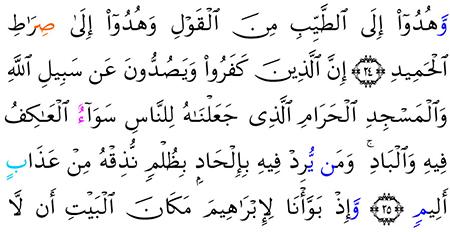 وَهُدُوٓا۟ إِلَى ٱلطَّيِّبِ مِنَ ٱلْقَوْلِ وَهُدُوٓا۟ إِلَىٰ صِرَٰطِ
ٱلْحَمِيدِ ﴿٢٤﴾ إِنَّ ٱلَّذِينَ كَفَرُوا۟ وَيَصُدُّونَ عَن سَبِيلِ ٱللَّهِ
وَٱلْمَسْجِدِ ٱلْحَرَامِ ٱلَّذِى جَعَلْنَٰهُ لِلنَّاسِ سَوَآءً ٱلْعَٰكِفُ
فِيهِ وَٱلْبَادِ ۚ وَمَن يُرِدْ فِيهِ بِإِلْحَادٍۭ بِظُلْمٍ نُّذِقْهُ مِنْ عَذَابٍ
أَلِيمٍ ﴿٢٥﴾ وَإِذْ بَوَّأْنَا لِإِبْرَٰهِيمَ مَكَانَ ٱلْبَيْتِ أَن لَّا